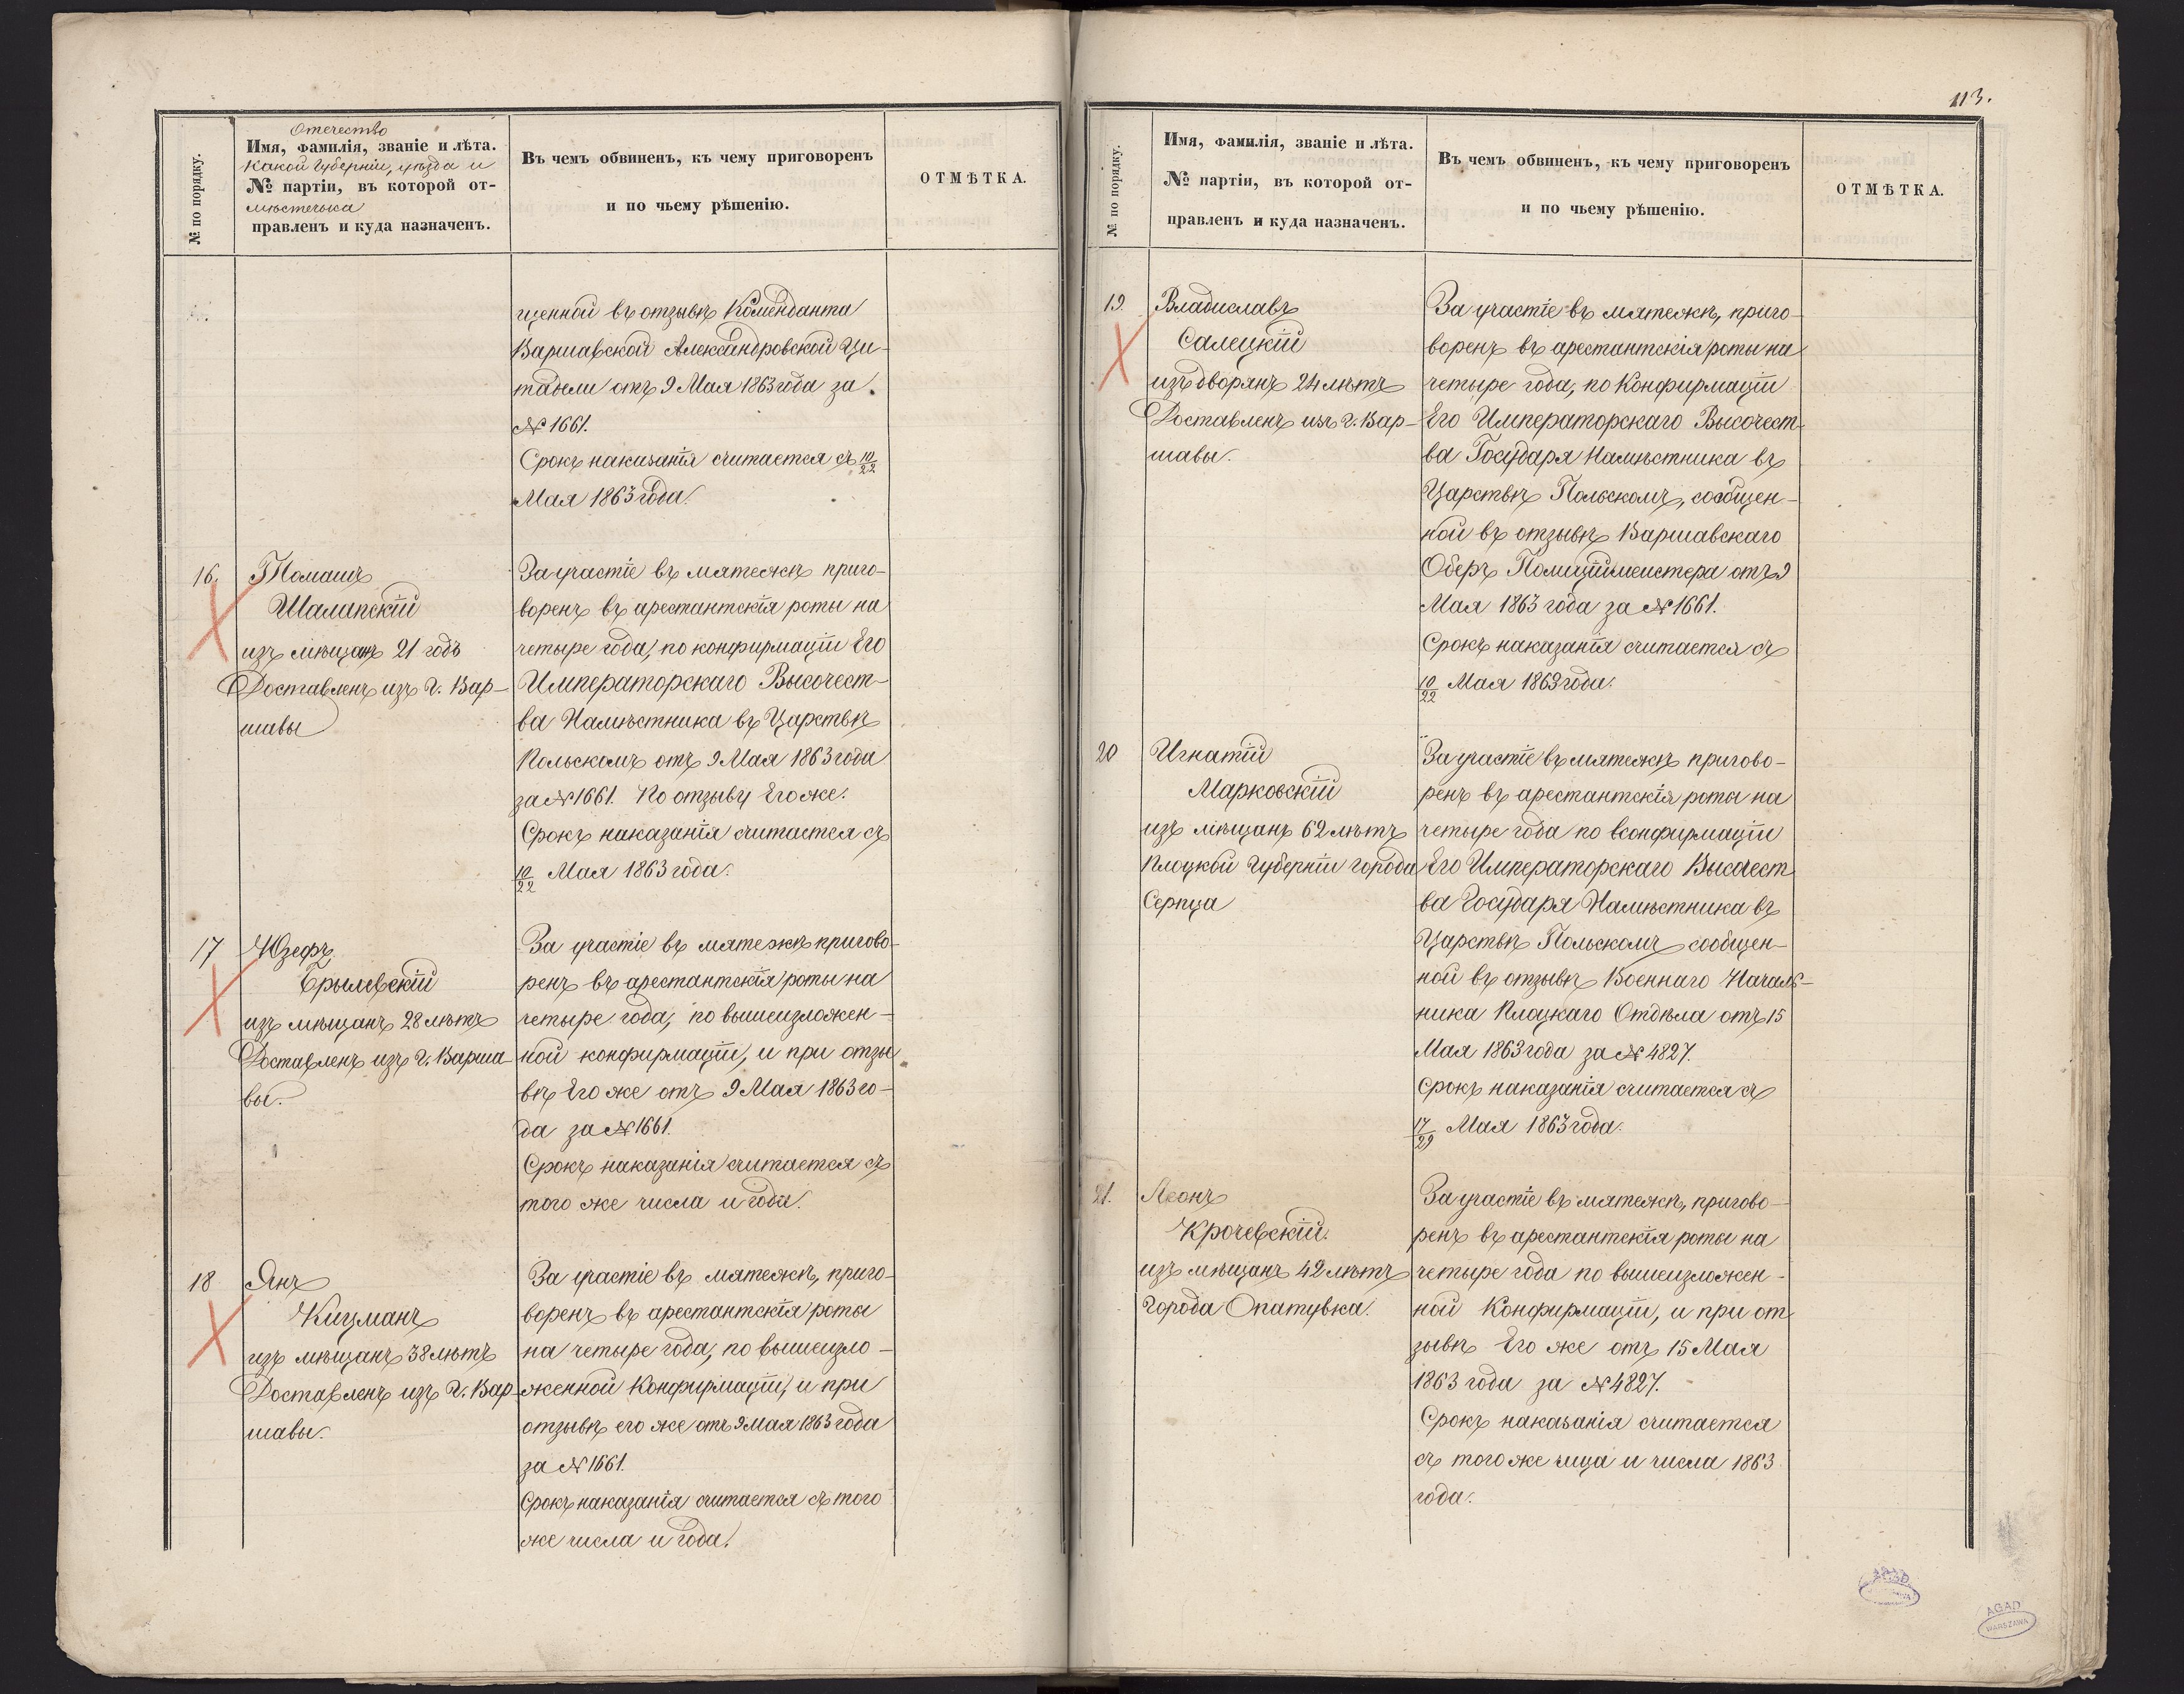 113.
№ по порядку.
Отечество
Имя, фамилія, званіе и лѣта.
Какой Губерніи, уѣзда и
№ партіи, въ которой от-
мѣстечька
правленъ и куда назначенъ.
Въ чемъ обвиненъ, къ чему приговоренъ
и по чьему рѣшенію.
ОТМѢТКА.
щенной въ отзывѣ Коменданта
Варшавской Александровской Ци-
тадели отъ 9 Мая 1863 года за
№ 1661.
Срокъ наказанія считается съ 10/22
Мая 1863 года.
16. Томашъ
Шалапскій
изъ мѣщанъ 21 годъ
Доставленъ изъ г. Вар-
шавы
За участіе въ мятежѣ приго-
воренъ въ арестантскія роты на
четыре года, по конфирмаціи Его
Императорскаго Высочест-
ва Намѣстника въ Царствѣ
Польскомъ отъ 9 Мая 1863 года
за № 1661. По отзыву Его же.
Срокъ наказанія считается съ
10/22 Мая 1863 года.
17 Юзефъ
Брылевскій
изъ мѣщанъ 28 лѣтъ
Доставленъ изъ г. Варша-
вы.
За участіе въ мятежѣ пригово-
ренъ въ арестантскія роты на
четыре года, по вышеизложен-
ной конфирмаціи, и при отзы
вѣ Его же отъ 9 Мая 1863 го-
да за № 1661.
Срокъ наказанія считается съ
того же числа и года.
18 Янъ
Кицманъ
изъ мѣщанъ 38 лѣтъ
Доставленъ изъ г. Вар-
шавы.
За участіе въ мятежѣ, приго-
воренъ въ арестантскія роты
на четыре года, по вышеизло-
женной Конфирмаціи, и при
отзывѣ его же отъ 9 Мая 1863 года
за № 1661.
Срокъ наказанія считается съ того
же числа и года.
№ по порядку.
Имя, фамилія, званіе и лѣта.
№ партіи, въ которой от-
правленъ и куда назначенъ.
Въ чемъ обвиненъ, къ чему приговоренъ
и по чьему рѣшенію.
ОТМѢТКА.
19. Владиславъ
Салецкій
изъ дворянъ 24 лѣтъ
Доставленъ изъ г. Вар-
шавы.
За участіе въ мятежѣ, приго-
воренъ въ арестантскія роты на
четыре года, по Конфирмаціи
Его Императорскаго Высочест-
ва Государя Намѣстника въ
Царствѣ Польскомъ, сообщен-
ной въ отзывѣ Варшавскаго
Оберъ Полицiймейстера отъ 9
Мая 1863 года за № 1661.
Срокъ наказанія считается съ
10/22 Мая 1863 года.
20 Игнатій
Марковскій
изъ мѣщанъ 62 лѣтъ
Плоцкой Губерніи города
Серпца
За участіе въ мятежѣ пригово-
ренъ въ арестантскія роты на
четыре года по конфирмаціи
Его Императорскаго Высочест
ва Государя Намѣстника въ
Царствѣ Польскомъ сообщен-
ной въ отзывѣ Военнаго Началь-
ника Плоцкаго Отдѣла отъ 15
Мая 1863 года за № 4827.
Срокъ наказанія считается съ
17/29 Мая 1863 года.
21. Леонъ
Крочевскій.
изъ мѣщанъ 42 лѣтъ
города Опатувка.
За участіе въ мятежѣ, пригово-
ренъ въ арестантскія роты на
четыре года по вышеизложен-
ной Конфирмаціи, и при от
зывѣ Его же отъ 15 Мая
1863 года за № 4827.
Срокъ наказанія считается
съ того же м-ца и числа 1863
года.
AGAD
WARSZAWA